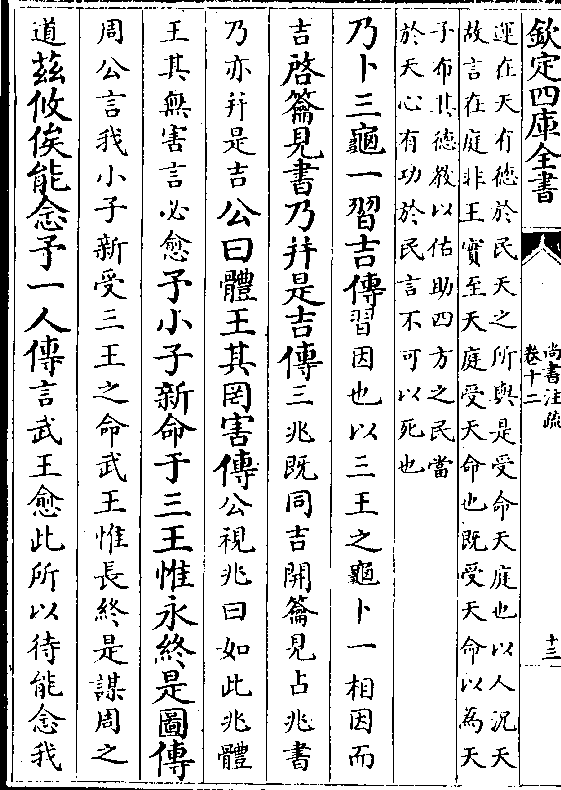 欽定四庫全書
尚書注疏
卷十二
十三
運在天有德於民天之所與是受命天庭也以人況天
故言在庭非王實至天庭受天命也既受天命以為天
子布其德教以佑助四方之民當
於天心有功於民言不可以死也
乃卜三龜一習吉傳習因也以三王之龜卜一相因而
吉啓籥見書乃并是吉傳三兆既同吉開籥見占兆書
乃亦并是吉公曰體王其罔害傳公視兆曰如此兆體
王其無害言必愈予小子新命于三王惟永終是圖傳
周公言我小子新受三王之命武王惟長終是謀周之
道茲攸俟能念予一人傳言武王愈此所以待能念我